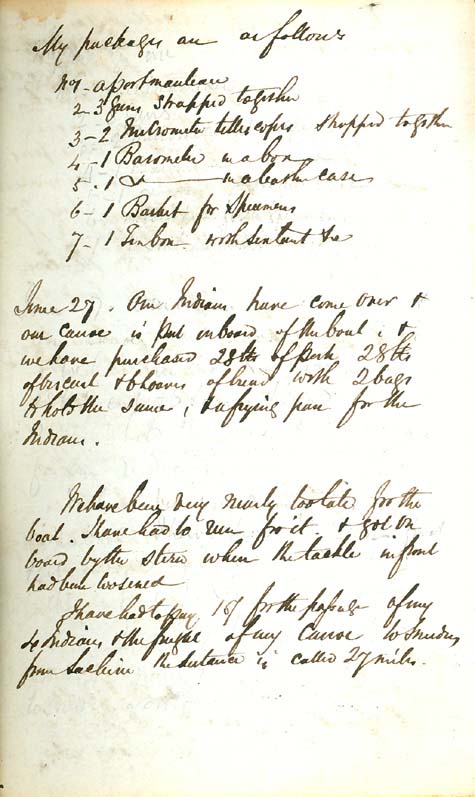 My packages are as follows
No 1 - a portmanteau
2 - 3 guns strapped together
3 - 2 Micrometer telescopes strapped together
4 - 1 Barometer in a box
5 . 1 Do ——— in a leather case
6 - 1 Basket for Specimens
7 - 1 Tin box with Sextant &c
June 27 . Our Indians have come over &
our canoe is put on board of the boat ; &
we have purchased 28 lbs of Pork 28 lbs
of biscuit & 6 loaves of bread with 2 bags
to hold the same ; & a frying pan for the
Indians .
We have been very nearly too late for the
boat . I have had to run for it & get on
board by the stern when the tackle in front
had been loosened
I have had to pay for the passage of my
4 Indians & the freight of my Canoe to
from Lachine the distance is called 27 miles .